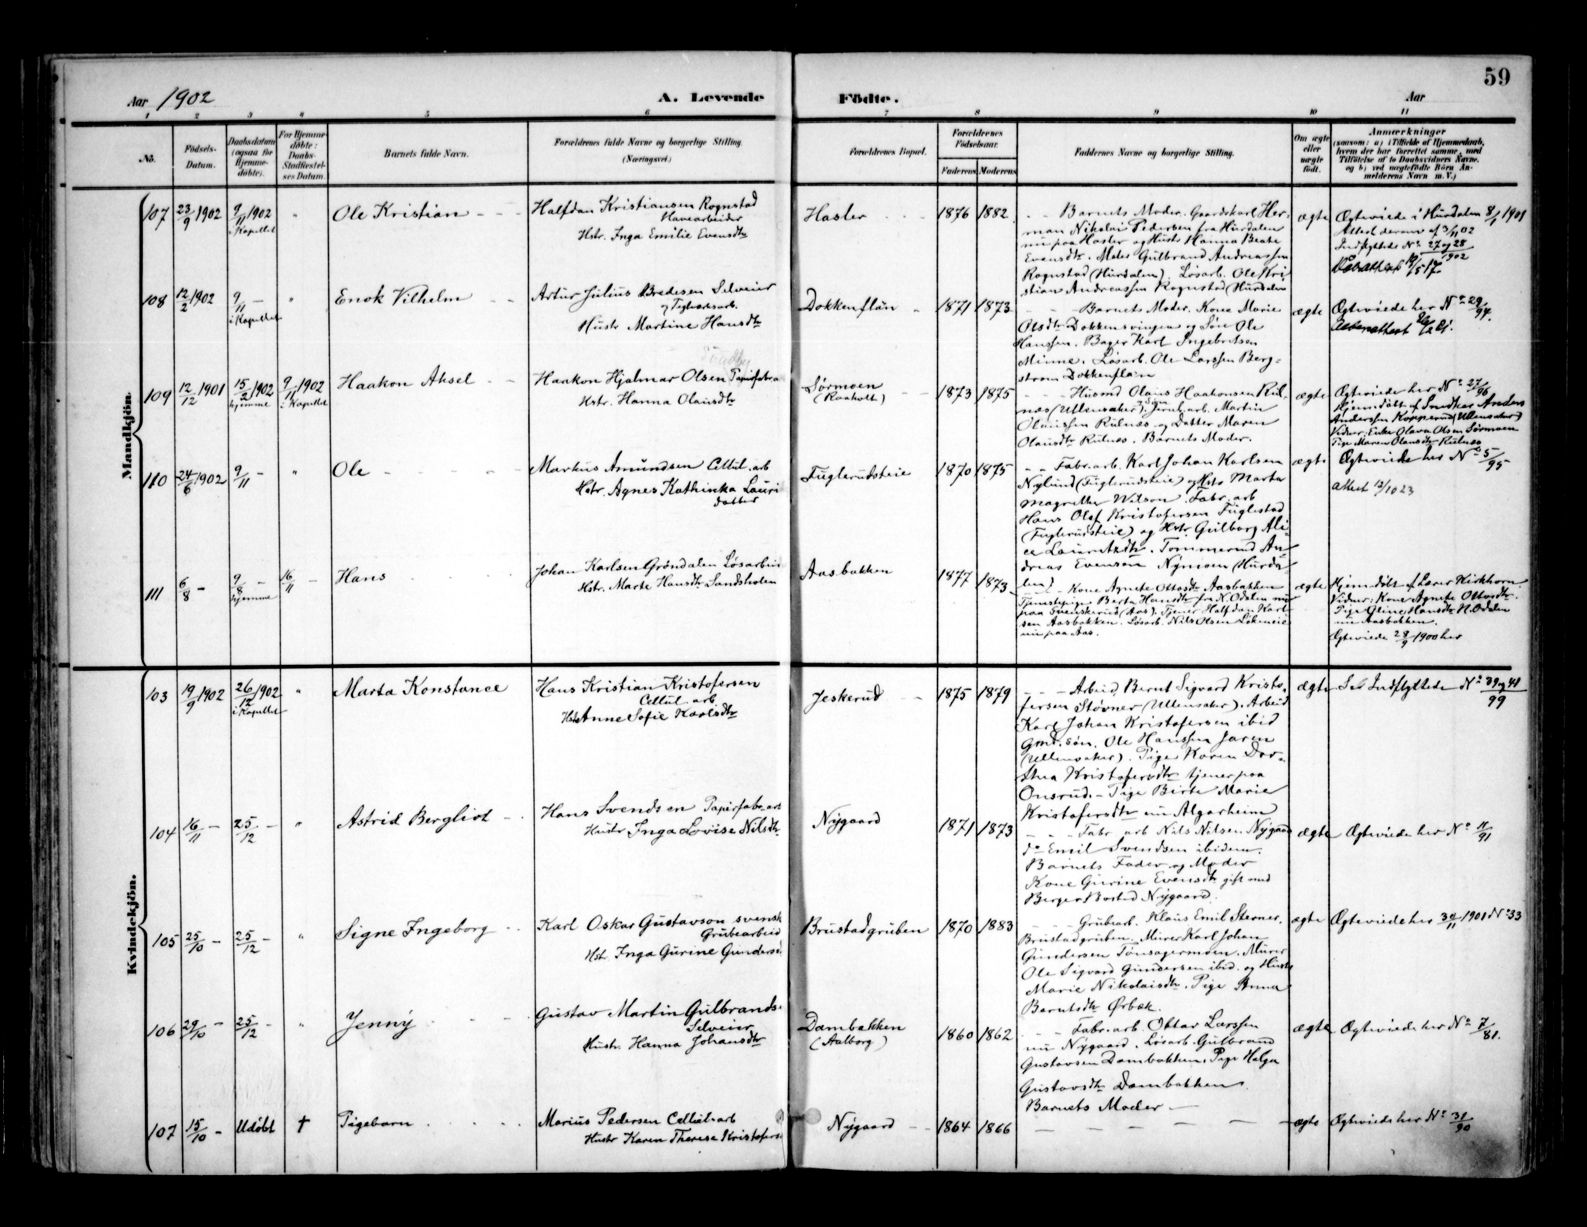 59
Aar 1902
A. Levende Födte.
Aar
1 2 3 4 5 6 7 8 9 10 11
No.
Födsels-
Datum.
Daabsdatum
(ogsaa for
Hjemme-
döbte).
For Hjemme-
döbte:
Daabs-
Stadfæstel-
ses Datum.
Barnets fulde Navn.
Forældrenes fulde Navne og borgerlige Stilling.
(Næringsvei)
Forældrenes Bopæl.
Forældrenes
Födselsaar.
Faderens Moderens
Faddernes Navne og borgerlige Stilling.
Om ægte
eller
uægte
födt.
Anmærkninger
(saasom: a) i Tilfælde af Hjemmedaab,
hvem der har forrettet samme, med
Tilföielse af to Daabsvidners Navne,
og b) ved uægtefödte Börn An-
melderens Navn m. V.)
Mandkjön
107 23/9 1902 9/11 1902 "
i Kapellet
Ole Kristian
Halfdan Kristiansen Rognstad
Havearbeider
Hstr. Inga Emilie Evensdtr
Hasler
1876 1882
Barnets Moder. Gaardskarl Her-
man Nikolai Pedersen fra Hurdalen
nu paa Hasler og Hustr Hanna Beate
Evensdtr. Møller Gulbrand Andreassen
Rognstad (Hurdalen). Løsarb. Ole Kri-
stian Andreassen Rognstad (Hurdalen
ægte
Ægteviede i Hurdalen 8/1 1901
Attest derom af 3/11 02
Indflyttede No 27 og 28
1902
108 12/2 1902 9/11 — "
i Kapellet
Enok Vilhelm
Artur Julius Bredesen Selveier
og Teglværksarb.
Hustr Martine Hansdtr
Dokkenflån
1871 1873
Barnets Moder. Kone Marie
Olsdtr Dokkensvingen og Søn Ole
Hanssen. Bager Karl Ingebretsen
Minne. Løsarb. Ole Larssen Berg-
strøm Dokkenflån
ægte
Ægteviede her No 29/94.
109 12/12 1901 15/2 1902 9/11 1902
hjemme i Kapellet
Haakon Aksel
Haakon Hjalmar Olsen Papirfabr.a
Hstr. Hanna Olausdtr
Sørmoen
(Raaholt)
1873 1875
Husmd Olaus Haakonsen Rul-
nes (Ullensaker). Jernb.arb. Martin
Olaussen Rulnes og Datter Maren
Olausdtr Rulnes. Barnets Moder.
ægte
Ægteviede her No 27/96
Hjemdøbt af Snedker Anders
Anderssen Kopperud (Ullensaker)
Vidner: Enke Olava Olsen Sørmoen
Pige Maren Olausdtr Rulnes
110 24/6 1902 9/11 — "
Ole
Markus Amundsen Cellul.arb
Hstr. Agnes Kathinka Lauri
datter
Fuglerudsteie
1870 1875
Fabr.arb. Karl Johan Karlsen
Nylund (Fuglerudsteie) og Hstr Marta
Magrethe Nilsen. Fabr.arb
Hans Olaf Kristofersen Fuglestad
(Fuglerudsteie) og Hstr Gulborg Ali-
ce Lauritzdtr. Tømmermd An-
dreas Evensen Nymoen (Hurda-
len)
ægte
Ægteviede her No 5/95
Attest 12/10 23
111 6/8 — 9/8 — 16/11 —
hjemme
Hans
Johan Karlsen Grøndalen Løsarbeid
Hstr. Marte Hansdtr Sandsholen
Aasbakken
1877 1873
Kone Agnete Ottosdtr Aasbakken
Tjenestepige Berta Hansdtr fra N. Odalen nu
paa Svenskerud (Aas). Tjener Halfdan Karl-
sen Aasbakken. Løsarb. Nils Olsen Løkeneie
nu paa Aas.
ægte
Hjemdøbt af Lærer Kirkhorn
Vidner: Kone Agnete Ottosdtr.
Pige Oline Hansdtr N. Odalen
nu Aasbakken.
Ægteviede 28/9 1900 her
Kvindekjön.
103 19/9 1902 26/12 1902 "
i Kapellet
Marta Konstance
Hans Kristian Kristofersen
Cellul arb
Hstr Anne Sofie Karlsdtr
Jeskerud
1875 1879
Arbeid. Bernt Sigvard Kristo-
fersen Støvner (Ullensaker). Arbeid
Karl Johan Kristofersen ibid
Gmd.søn. Ole Hanssen Jaren
(Ullensaker). Pige Karen Dor-
thea Kristofersdtr tjener paa
Onsrud. Pige Birte Marie
Kristofersdtr nu Algarheim
ægte
Se Indflyttede No 39 og 41/99
104 16/11 — 25/12 — "
Astrid Bergliot
Hans Svendsen Papirfabr.arb
Hustr Inga Lovise Nilsdtr.
Nygaard
1871 1873
Fabr. arb Nils Nilsen Nygaard
do Emil Svendsen ibidem.
Barnets Fader og Moder
Kone Gurine Evensdtr gift med
Berger Borstad Nygaard.
ægte
Ægteviede her No 11/91
105 25/10 — 25/12 — "
Signe Ingeborg
Karl Oskar Gustavson svensk
Grubearbeid
Hstr. Inga Gurine Gunders
Brustadgruben
1870 1883
Grubearb. Klaus Emil Sterner.
Brustadgruben. Murer Karl Johan
Gundersen Tønsagermoen. Murer
Ole Sigvard Gundersen ibid. og Hustr
Marie Nikolaisdtr. Pige Anna
Berntsdtr Ørbæk.
ægte
Ægteviede her 30/11 1901 No 33
106 29/10 — 25/12 — "
Jenny
Gustav Martin Gulbrands.
Selveier
Hustr. Hanna Johansdtr
Dambakken
(Aalborg)
1860 1862
Fabr.arb Oskar Larssen
nu Nygaard. Løsarb. Gulbrand
Gustavsen Dambakken. Pige Helga
Gustavsdtr Dambakken.
Barnets Moder —
ægte
Ægteviede her No 7/81.
107 15/10 — Udöbt †
Pigebarn
Marius Pedersen Cellul.arb
Hustr Karen Therese Kristofers
Nygaard
1864 1866
ægte
Ægteviede her No 31/90